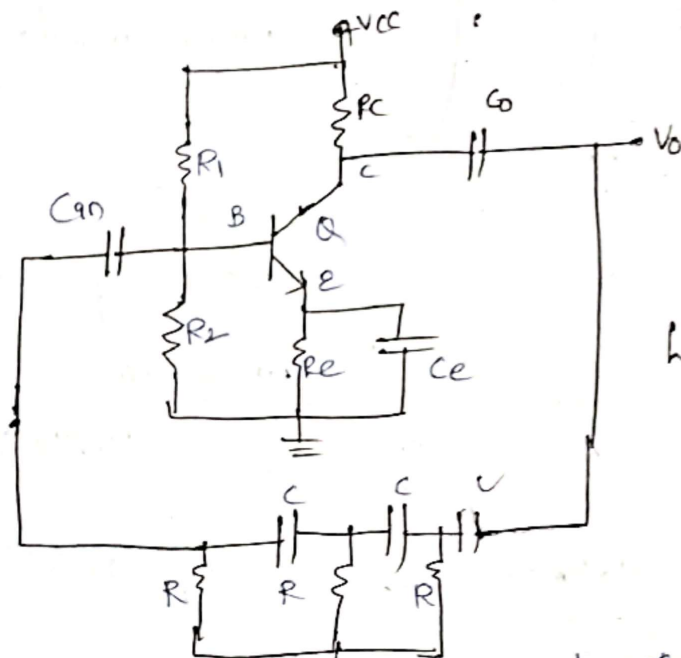 VCC
RC
Co
Vo
C
R1
Cin
B
Q
E
R2
Re
Ce
C
C
C
R
R
R